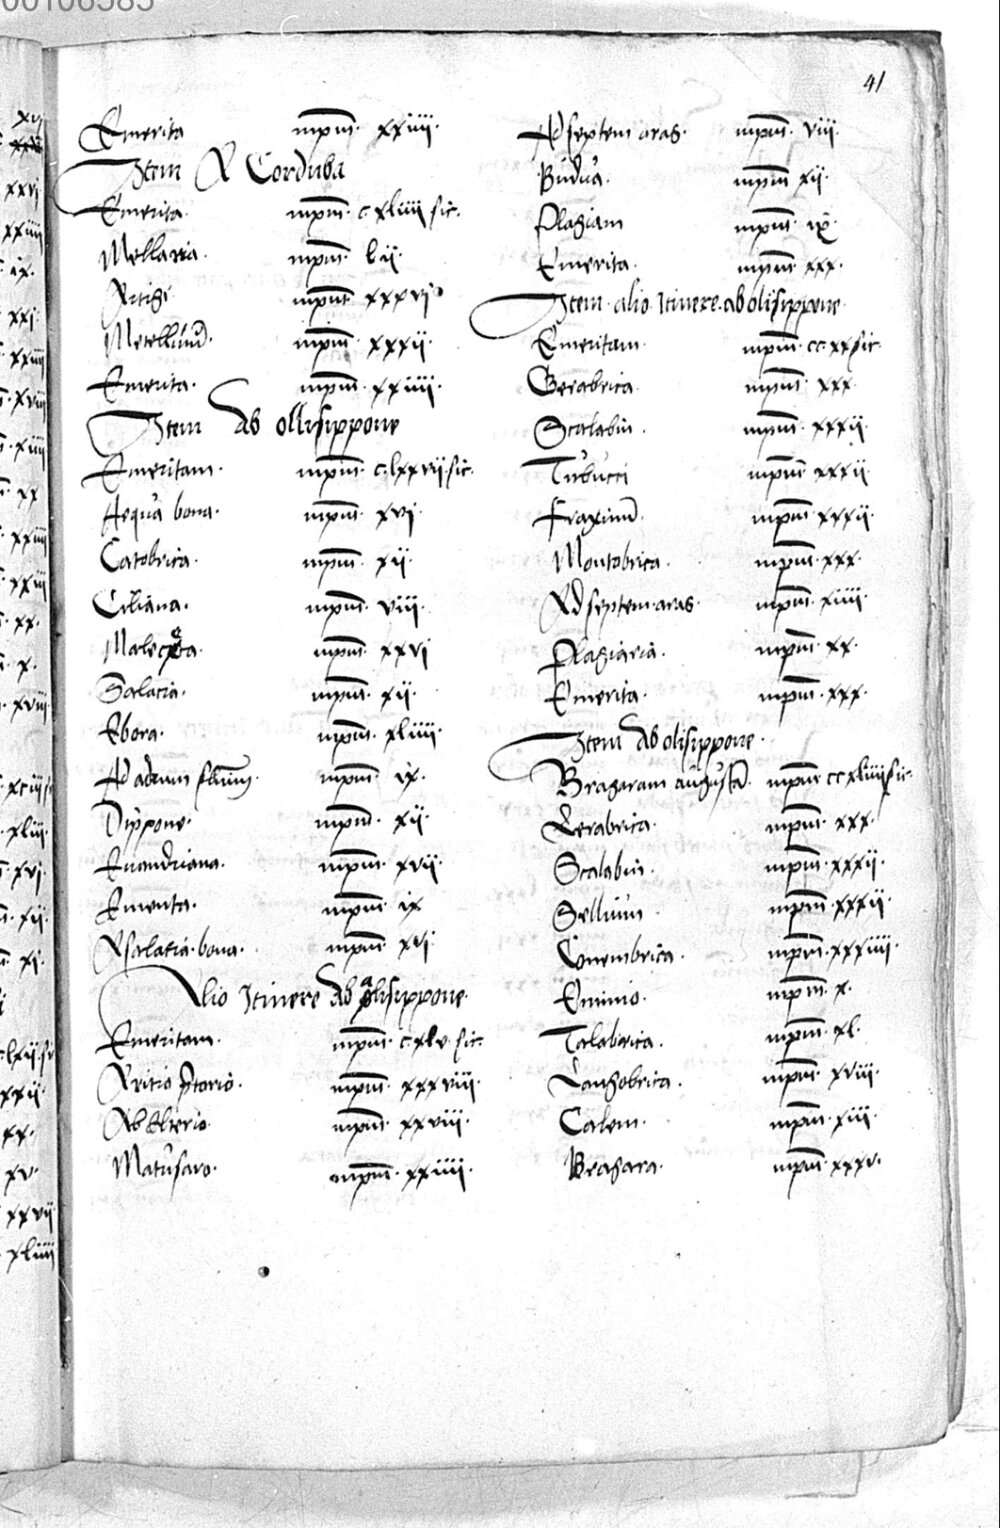 00106585
41
Emerita mpm. xxiiii.
Item A Corduba
Emerita. mpm. cxliiii sic.
Mellaria. mpm. lii.
Artigi mpm. xxxvi
Metellinum. mpm. xxxii.
Emerita. mpm. xxiiii.
Item Ab ollisippone
Emeritam. mpm. clxxvii sic.
Aequa bona. mpm. xvi.
Catobrica. mpm. xii.
Ciliana. mpm. viii.
Malececa. mpm. xxvi
Salacia. mpm. xii.
Ebora. mpm. xliiii.
Ad adrum flum. mpm. ix.
Dippone. mpm. xii.
Euandriana. mpm. xvii.
Emerita. mpm. ix
A salatia. bona. mpm. xvi
Alio Itinere Ab olisippone.
Emeritam. mpm. cxlv. sic.
Aritio ptorio. mpm. xxxviii.
Abelterio. mpm. xxviii.
Matusaro. mpm. xxiiii.
Ad septem aras. mpm. viii.
Budua. mpm xii.
Plagiam mpm. ix.
Emerita. mpm xxx.
Item alio Itinere. ab olisippone.
Emeritam. mpm. ccxx sic.
Gerabrica. mpm. xxx.
Scalabin. mpm. xxxii.
Tubucci mpm xxxii.
Fraxinum. mpm xxxii.
Montobrica. mpm. xxx.
Ad septem. aras. mpm. xiiii.
Plagiaria. mpm. xx.
Emerita. mpm. xxx.
Item Ab olisippone.
Bragaram augusta. mpm ccxliiii sic.
Ierabrica. mpm. xxx.
Scalabin. mpm. xxxii.
Sellium. mpm. xxxii.
Conembrica. mpm. xxxiiii.
Eminio. mpm. x.
Talabrica. mpm. xl.
Langobrica. mpm. xviii.
Calem. mpm. xiii.
Bragara. mpm. xxxv.